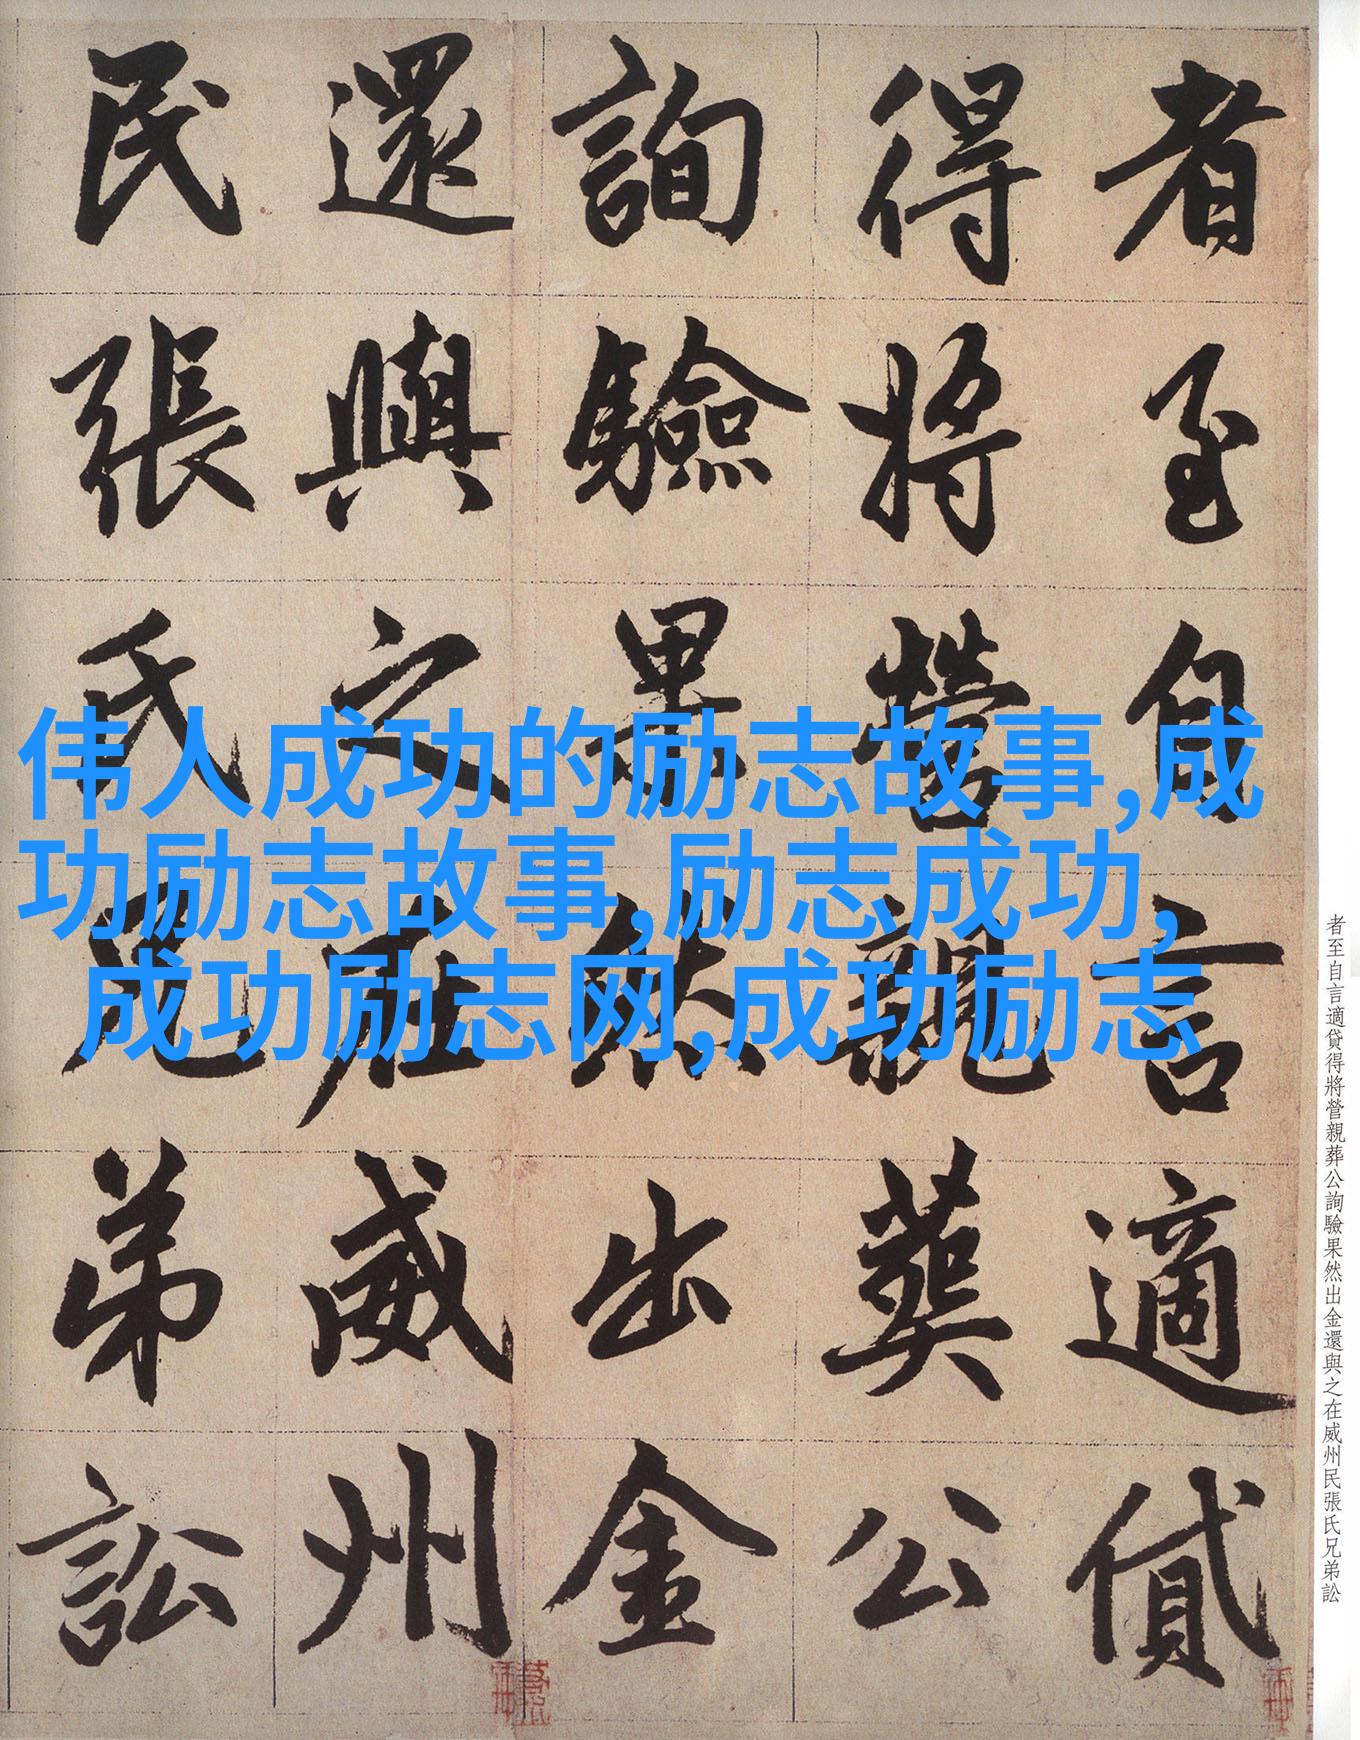 伟人成功的励志故事,成
功励志故事,励志成功,
成功励志网,成功励志
者至自言適貸
得將營親葬公
詢驗果然出金
還與之在威州
民張氏兄弟訟
者至自言適貸得將營親葬公詢驗果然出金還與之在威州民張氏兄弟訟